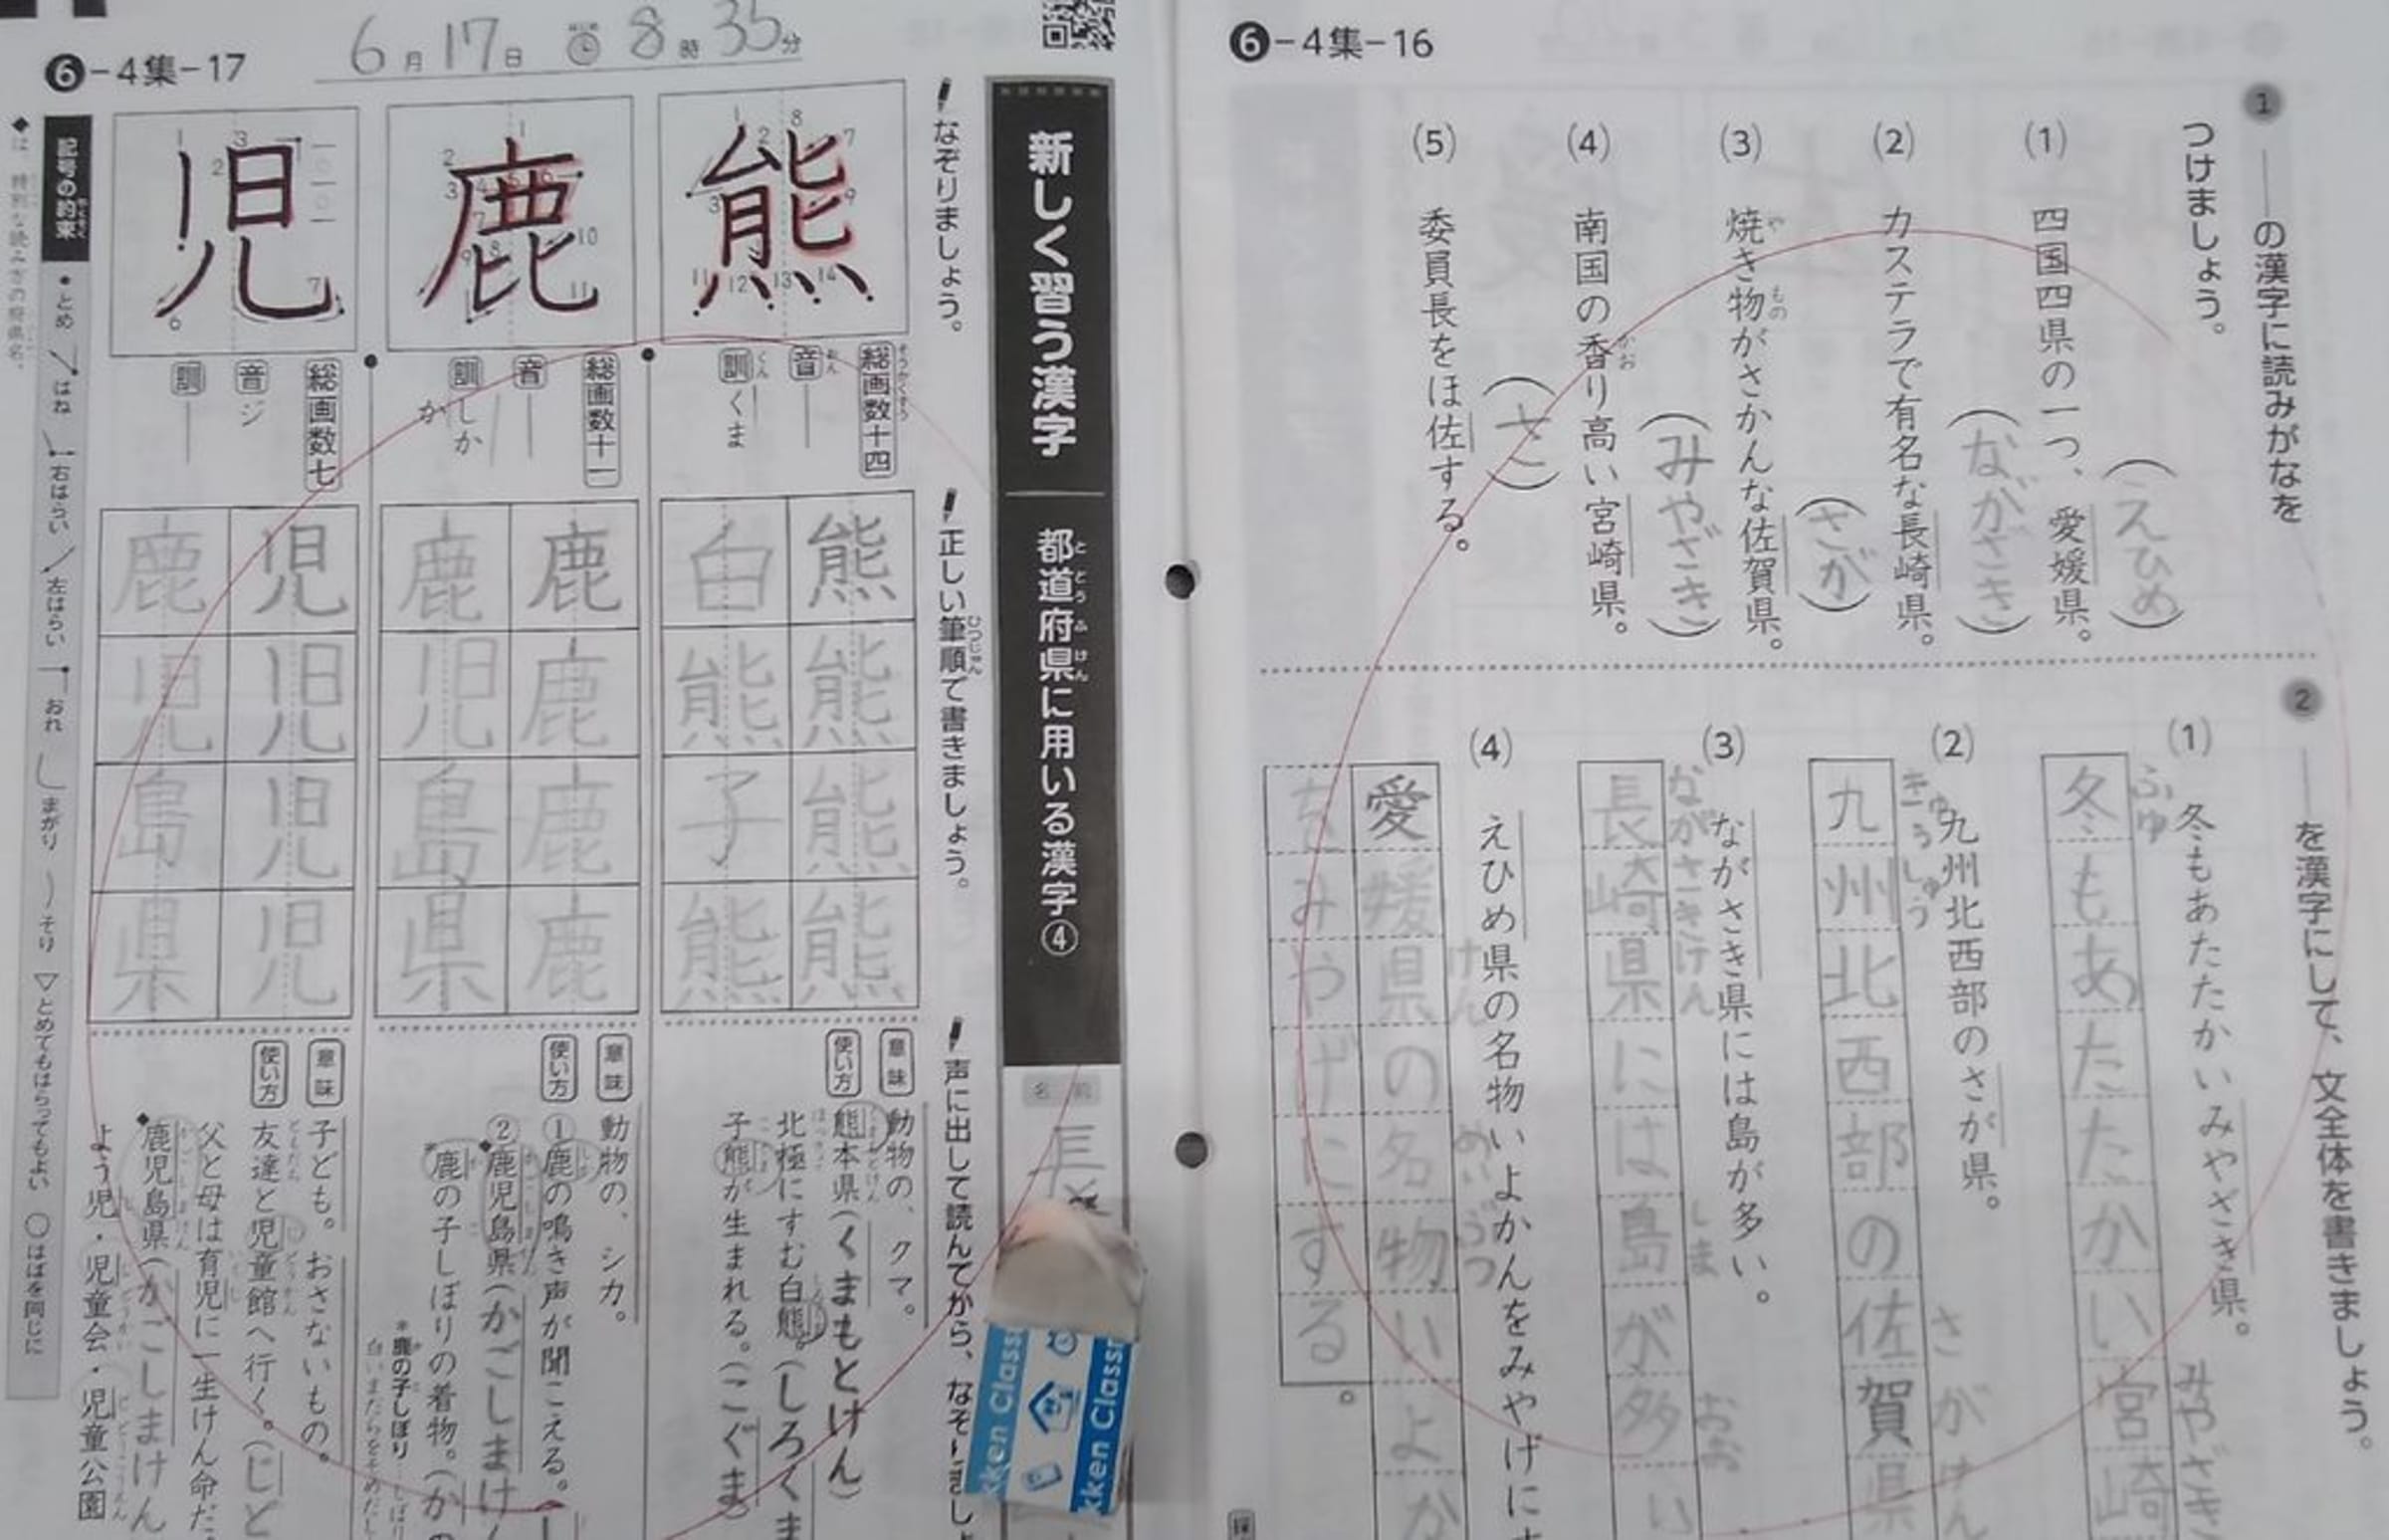 ❻-4集-16
① ──の漢字に読みがなを
つけましょう。
(1) 四国四県の一つ、愛媛県。
(えひめ)
(2) カステラで有名な長崎県。
(ながさき)
(3) 焼き物がさかんな佐賀県。
(さが)
(4) 南国の香り高い宮崎県。
(みやざき)
(5) 委員長をほ佐する。
(さ)
② ──を漢字にして、文全体を書きましょう。
(1) 冬もあたたかいみやざき県。
冬もあたたかい宮崎
(2) 九州北西部のさが県。
九州北西部の佐賀県
(3) ながさき県には島が多い。
長崎県には島が多い
(4) えひめ県の名物いよかんをみやげに
愛媛県の名物いよか
をみやげにする。
❻-4集-17
6月17日 8時35分
新しく習う漢字 都道府県に用いる漢字④
名前
長
なぞりましょう。
正しい筆順で書きましょう。
声に出して読んでから、なぞりましょ
熊
総画数十四
音 ──
訓 くま
熊熊熊熊
白熊子熊
意味 動物の、クマ。
使い方 熊本県(くまもとけん)
北極にすむ白熊。(しろくま
子熊が生まれる。(こぐま)
鹿
総画数十一
音 ──
訓 しか
か
鹿鹿鹿鹿
鹿児島県
意味 動物の、シカ。
使い方 ①鹿の鳴き声が聞こえる。
②鹿児島県(かごしまけ
鹿の子しぼりの着物。(かの
*鹿の子しぼり
児
総画数七
音 ジ
訓 ──
児児児児
鹿児島県
意味 子ども。おさないもの。
使い方 友達と児童館へ行く。(じど
父と母は育児に一生けん命だ
鹿児島県(かごしまけん
よう児・児童会・児童公園
記号の約束 ・とめ はね 右はらい 左はらい おれ まがり そり ▽とめてもはらってもよい ○はばを同じに
◆は、特別な読み方の府県名。
kken Class
kken Classr